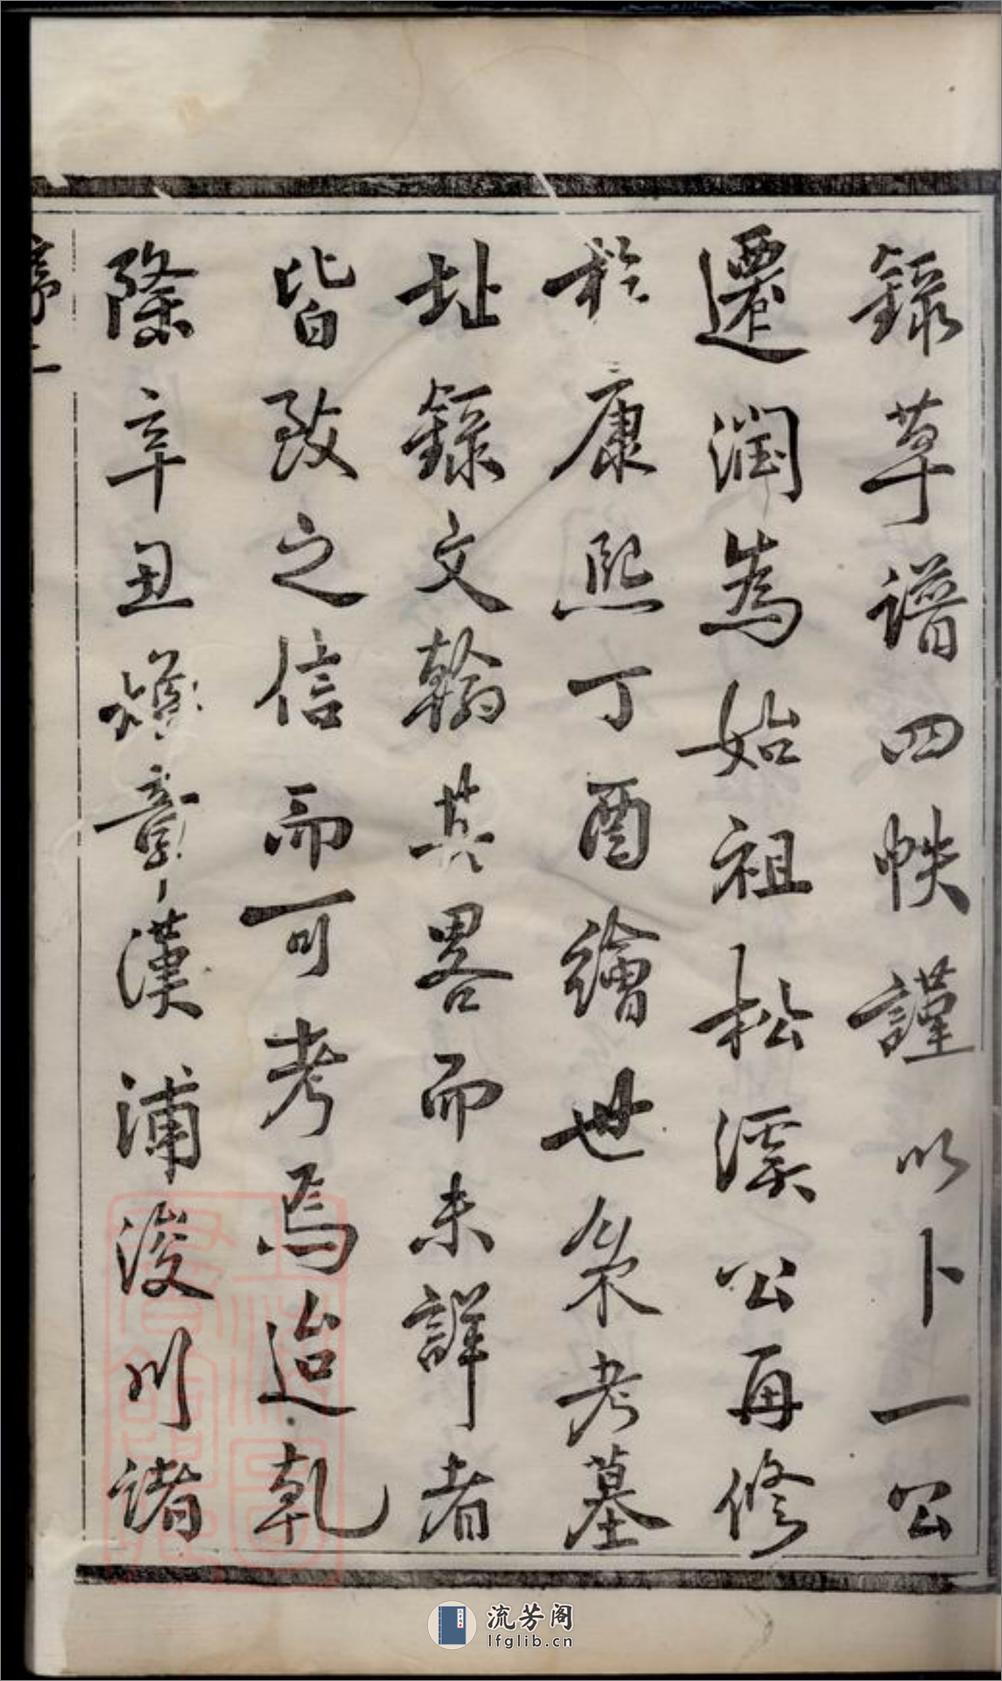 錄草譜四帙謹以卜一公
遷潤為始祖松溪公再修
於康熙丁酉繪世系考墓
址錄文翰其畧而未詳者
皆致之信而可考焉迨乾
隆辛丑煥章漢浦浚川諸
序二
流芳阁
lfglib.cn